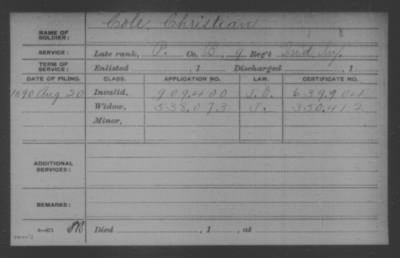 NAME OF SOLDIER: Cole, Christian
SERVICE: Late rank, P. Co. B, 9 Reg't Ind Inf.
TERM OF SERVICE: Enlisted , 1 Discharged , 1
DATE OF FILING. CLASS. APPLICATION NO. LAW. CERTIFICATE NO.
1890 Aug 20 Invalid, 909400 639901
Widow, 538,073 350,412
Minor,
ADDITIONAL SERVICES:
REMARKS:
Died , 1 , at